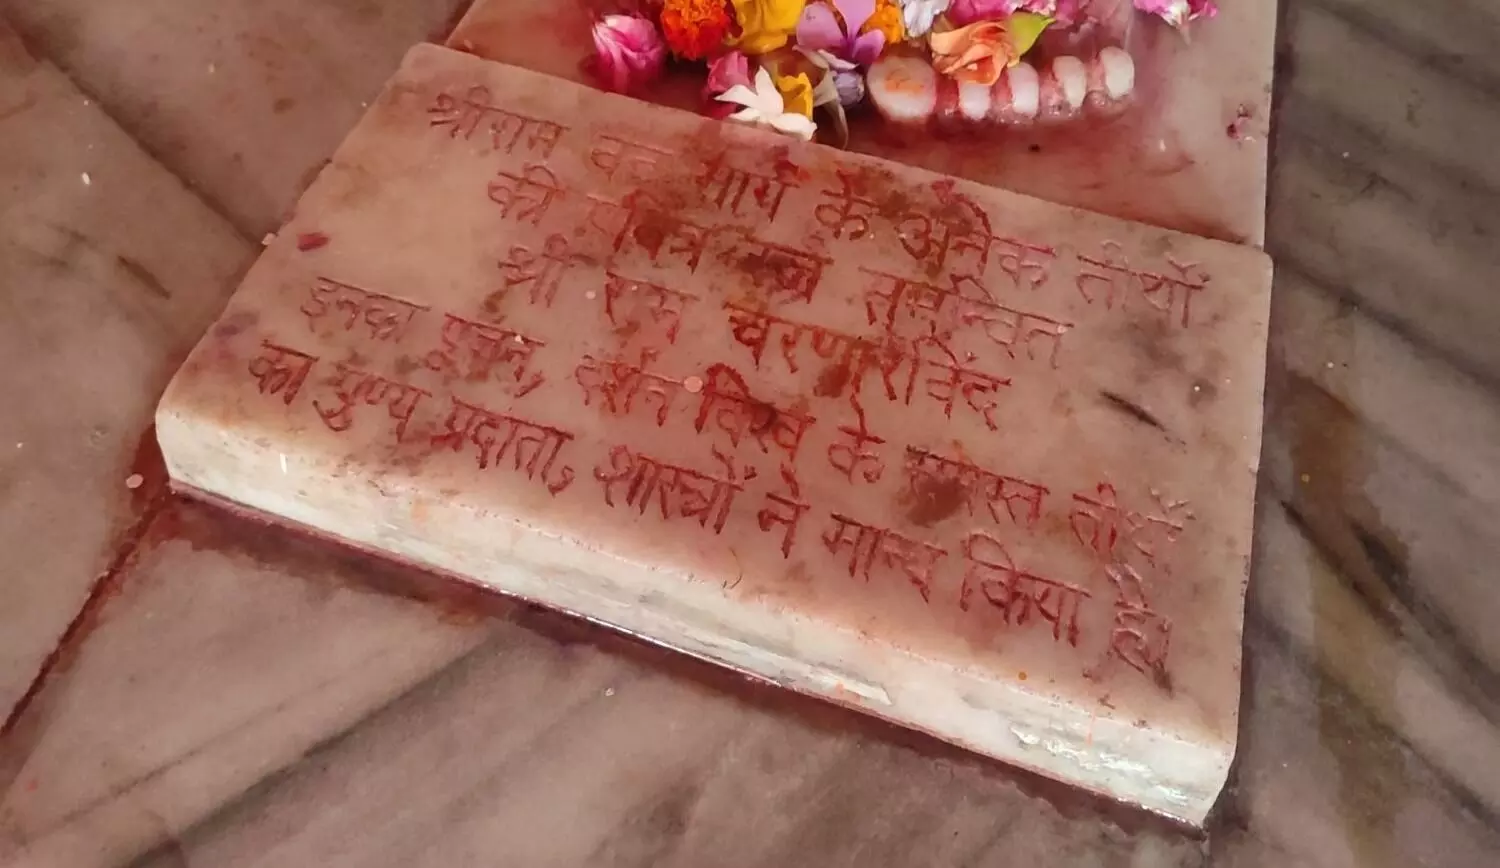 श्रीराम वन मार्ग के अनेक तीर्थों
की पवित्र रज समन्वित
श्री राम चरणारविंद
इनका पूजन, दर्शन विश्व के समस्त तीर्थों
का पुण्य प्रदाता, शास्त्रों ने मान्य किया है।